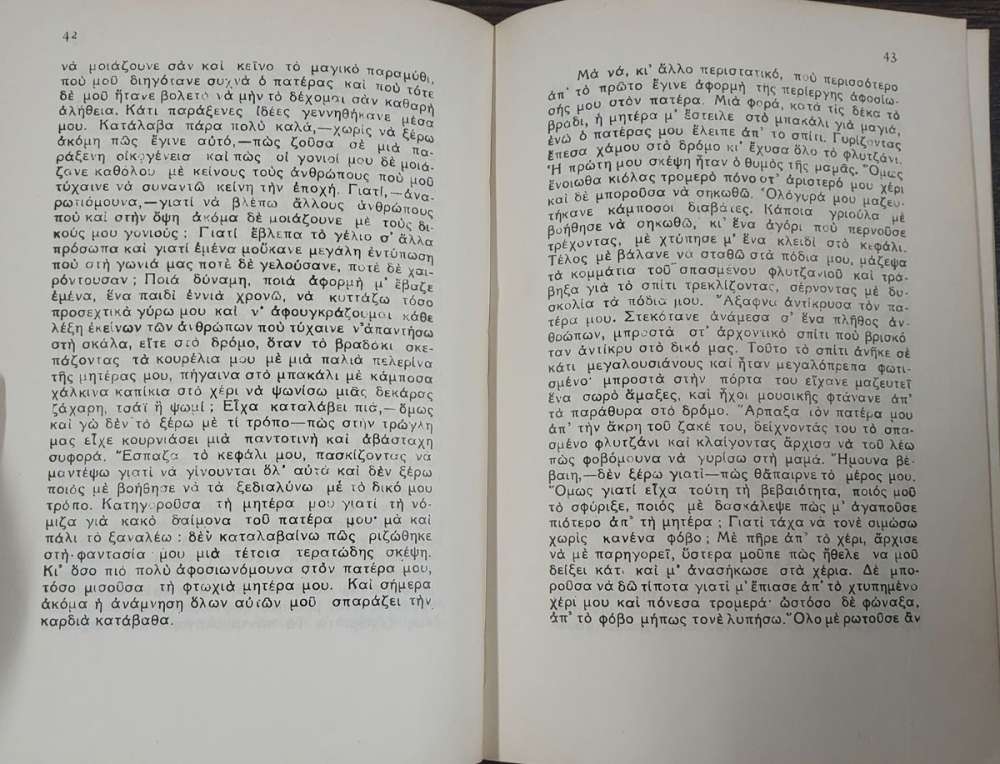 42
νὰ μοιάζουνε σὰν καὶ κεῖνο τὸ μαγικὸ παραμύθι,
ποὺ μοῦ διηγότανε συχνὰ ὁ πατέρας καὶ ποὺ τότε
δὲ μοῦ ἤτανε βολετὸ νὰ μὴν τὸ δέχομαι σὰν καθαρὴ
ἀλήθεια. Κάτι παράξενες ἰδέες γεννηθήκανε μέσα
μου. Κατάλαβα πάρα πολὺ καλά,—χωρὶς νὰ ξέρω
ἀκόμη πὼς ἔγινε αὐτό,—πὼς ζοῦσα σὲ μιὰ πα-
ράξενη οἰκογένεια καὶ πὼς οἱ γονιοί μου δὲ μοιά-
ζανε καθόλου μὲ κείνους τοὺς ἀνθρώπους ποὺ μοῦ
τύχαινε νὰ συναντῶ κείνη τὴν ἐποχή. Γιατί,—ἀνα-
ρωτιόμουνα,—γιατί νὰ βλέπω ἄλλους ἀνθρώπους
ποὺ καὶ στὴν ὄψη ἀκόμα δὲ μοιάζουνε μὲ τοὺς δι-
κούς μου γονιούς ; Γιατί ἔβλεπα τὸ γέλιο σ' ἄλλα
πρόσωπα καὶ γιατί ἐμένα μοὔκανε μεγάλη ἐντύπωση
ποὺ στὴ γωνιά μας ποτὲ δὲ γελούσανε, ποτὲ δὲ χαι-
ρόντουσαν ; Ποιά δύναμη, ποιά ἀφορμὴ μ' ἔβαζε
ἐμένα, ἕνα παιδὶ ἐννιὰ χρονῶ, νὰ κυττάζω τόσο
προσεχτικὰ γύρω μου καὶ ν' ἀφουγκράζουμαι κάθε
λέξη ἐκείνων τῶν ἀνθρώπων ποὺ τύχαινε ν' ἀπαντήσω
στὴ σκάλα, εἴτε στὸ δρόμο, ὅταν τὸ βραδάκι σκε-
πάζοντας τὰ κουρέλια μου μὲ μιὰ παλιὰ πελερίνα
τῆς μητέρας μου, πήγαινα στὸ μπακάλι μὲ κάμποσα
χάλκινα καπίκια στὸ χέρι νὰ ψωνίσω μιᾶς δεκάρας
ζάχαρη, τσάϊ ἢ ψωμί ; Εἶχα καταλάβει πιά,—ὅμως
καὶ γὼ δὲν τὸ ξέρω μὲ τί τρόπο—πὼς στὴν τρώγλη
μας εἶχε κουρνιάσει μιὰ παντοτινὴ καὶ ἀβάσταχη
συφορά. Ἔσπαζα τὸ κεφάλι μου, πασκίζοντας νὰ
μαντέψω γιατί νὰ γίνουνται ὅλ' αὐτὰ καὶ δὲν ξέρω
ποιὸς μὲ βοήθησε νὰ τὰ ξεδιαλύνω μὲ τὸ δικό μου
τρόπο. Κατηγοροῦσα τὴ μητέρα μου γιατί τὴ νό-
μιζα γιὰ κακὸ δαίμονα τοῦ πατέρα μου· μὰ καὶ
πάλι τὸ ξαναλέω : δὲν καταλαβαίνω πῶς ριζώθηκε
στὴ φαντασία μου μιὰ τέτοια τερατώδης σκέψη.
Κι' ὅσο πιὸ πολὺ ἀφοσιωνόμουνα στὸν πατέρα μου,
τόσο μισοῦσα τὴ φτωχιὰ μητέρα μου. Καὶ σήμερα
ἀκόμα ἡ ἀνάμνηση ὅλων αὐτῶν μοῦ σπαράζει τὴν
καρδιὰ κατάβαθα.
43
Μὰ νά, κι' ἄλλο περιστατικό, ποὺ περισσότερο
ἀπ' τὸ πρῶτο ἔγινε ἀφορμὴ τῆς περίεργης ἀφοσίω-
σής μου στὸν πατέρα. Μιὰ φορά, κατὰ τὶς δέκα τὸ
βράδι, ἡ μητέρα μ' ἔστειλε στὸ μπακάλι γιὰ μαγιά,
ἐνῶ ὁ πατέρας μου ἔλειπε ἀπ' τὸ σπίτι. Γυρίζοντας
ἔπεσα χάμου στὸ δρόμο κι' ἔχυσα ὅλο τὸ φλυτζάνι.
Ἡ πρώτη μου σκέψη ἦταν ὁ θυμὸς τῆς μαμᾶς. Ὅμως
ἔνοιωθα κιόλας τρομερὸ πόνο στ' ἀριστερό μου χέρι
καὶ δὲ μποροῦσα νὰ σηκωθῶ. Ὁλόγυρά μου μαζευ-
τήκανε κάμποσοι διαβάτες. Κάποια γριοῦλα μὲ
βοήθησε νὰ σηκωθῶ, κι' ἕνα ἀγόρι ποὺ περνοῦσε
τρέχοντας, μὲ χτύπησε μ' ἕνα κλειδὶ στὸ κεφάλι.
Τέλος μὲ βάλανε νὰ σταθῶ στὰ πόδια μου, μάζεψα
τὰ κομμάτια τοῦ σπασμένου φλυτζανιοῦ καὶ τρά-
βηξα γιὰ τὸ σπίτι τρεκλίζοντας, σέρνοντας μὲ δυ-
σκολία τὰ πόδια μου. Ἄξαφνα ἀντίκρυσα τὸν πα-
τέρα μου. Στεκότανε ἀνάμεσα σ' ἕνα πλῆθος ἀν-
θρώπων, μπροστὰ στ' ἀρχοντικὸ σπίτι ποὺ βρισκό
ταν ἀντίκρυ στὸ δικό μας. Τοῦτο τὸ σπίτι ἀνῆκε σὲ
κάτι μεγαλουσιάνους καὶ ἦταν μεγαλόπρεπα φωτι-
σμένο· μπροστὰ στὴν πόρτα του εἴχανε μαζευτεῖ
ἕνα σωρὸ ἅμαξες, καὶ ἦχοι μουσικῆς φτάνανε ἀπ'
τὰ παράθυρα στὸ δρόμο. Ἅρπαξα τὸν πατέρα μου
ἀπ' τὴν ἄκρη τοῦ ζακέ του, δείχνοντάς του τὸ σπα-
σμένο φλυτζάνι καὶ κλαίγοντας ἄρχισα νὰ τοῦ λέω
πὼς φοβόμουνα νὰ γυρίσω στὴ μαμά. Ἤμουνα βέ-
βαιη,—δὲν ξέρω γιατί—πὼς θἄπαιρνε τὸ μέρος μου.
Ὅμως γιατί εἶχα τούτη τὴ βεβαιότητα, ποιός μοῦ
τὸ σφύριξε, ποιός μὲ δασκάλεψε πὼς μ' ἀγαποῦσε
πιότερο ἀπ' τὴ μητέρα ; Γιατί τάχα νὰ τονὲ σιμώσω
χωρὶς κανένα φόβο ; Μὲ πῆρε ἀπ' τὸ χέρι, ἄρχισε
νὰ μὲ παρηγορεῖ, ὕστερα μοῦπε πὼς ἤθελε νὰ μοῦ
δείξει κάτι καὶ μ' ἀνασήκωσε στὰ χέρια. Δὲ μπο-
ροῦσα νὰ δῶ τίποτα γιατὶ μ' ἔπιασε ἀπ' τὸ χτυπημένο
χέρι μου καὶ πόνεσα τρομερά· ὡστόσο δὲ φώναξα,
ἀπ' τὸ φόβο μήπως τονὲ λυπήσω. Ὅλο μὲ ρωτοῦσε ἂν